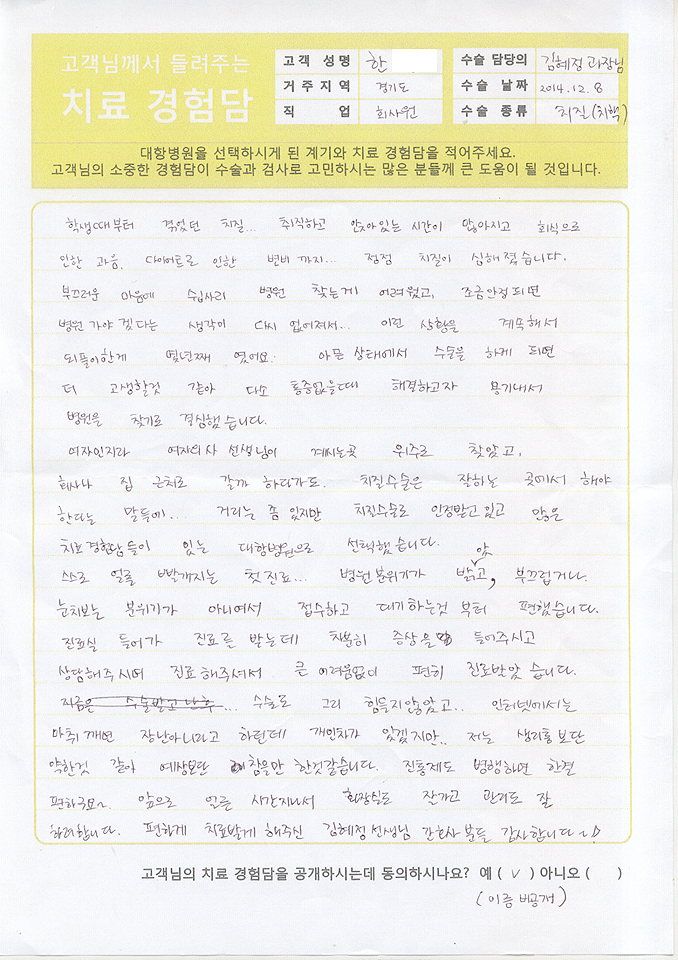 고객님께서 들려주는
치료 경험담
고객 성명 한
거주지역 경기도
직 업 회사원
수술 담당의 김혜정 과장님
수술 날짜 2014.12.8
수술 종류 치질(치핵)
대항병원을 선택하시게 된 계기와 치료 경험담을 적어주세요.
고객님의 소중한 경험담이 수술과 검사로 고민하시는 많은 분들께 큰 도움이 될 것입니다.
학생때부터 겪었던 치질... 취직하고 앉아있는 시간이 많아지고 회식으로
인한 과음, 다이어트로 인한 변비까지... 점점 치질이 심해졌습니다.
부끄러운 마음에 쉽사리 병원 찾는게 어려웠고, 조금안정되면
병원가야겠다는 생각이 다시 없어져서... 이런 상황을 계속해서
되풀이한게 몇년째 였어요. 아픈 상태에서 수술을 하게 되면
더 고생할것 같아 다소 통증없을때 해결하고자 용기내서
병원을 찾기로 결심했습니다.
여자인지라 여자의사 선생님이 계시는곳 위주로 찾았고,
회사나 집 근처로 갈까 하다가도. 치질수술은 잘하는 곳에서 해야
한다는 말들에... 거리는 좀 있지만 치질수술로 인정받고 있고 많은
치료경험담들이 있는 대항병원으로 선택했습니다.
스스로 얼굴 빨개지는 첫진료... 병원분위기가 밝았고, 부끄럽거나.
눈치보는 분위기가 아니여서 접수하고 대기하는것 부터 편했습니다.
진료실 들어가 진료를 받는데 차분히 증상을 들어주시고
상담해주시며 진료해주셔서 큰 어려움없이 편히 진료받았습니다.
지금은 수술받고 난후... 수술도 그리 힘들지않았고.. 인터넷에서는
마취깨면 장난아니라고 하던데 개인차가 있겠지만.. 저는 생리통보단
약한것 같아 예상보단 참을만 한것같습니다. 진통제도 병행하면 한결
편하구요~. 앞으로 얼른 시간지나서 화장실도 잘가고 관리도 잘
하려합니다. 편하게 치료받게 해주신 김혜정선생님 간호사분들 감사합니다~!
고객님의 치료 경험담을 공개하시는데 동의하시나요? 예 ( v ) 아니오 ( )
(이름 비공개)